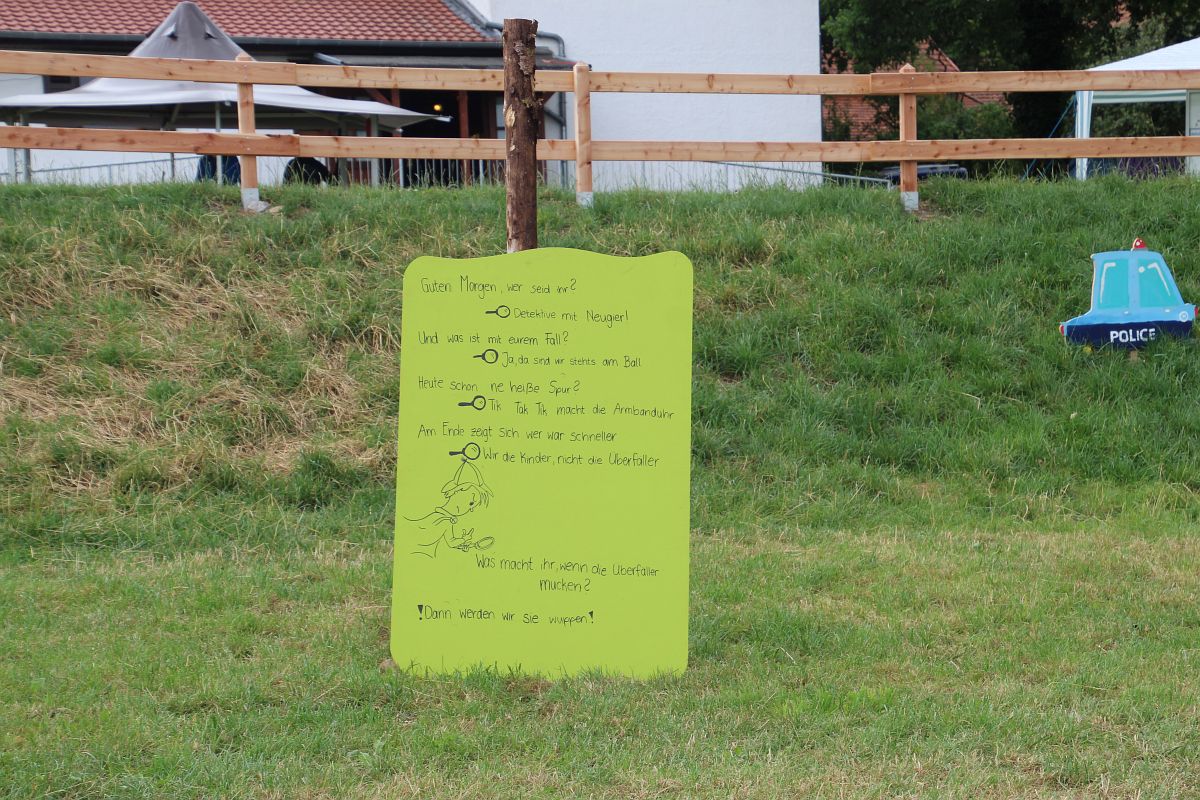 Guten Morgen, wer seid ihr?
Detektive mit Neugier!
Und was ist mit eurem Fall?
Ja, da sind wir stehts am Ball
Heute schon ne heiße Spur?
Tik Tak Tik macht die Armbanduhr
Am Ende zeigt sich wer war schneller
Wir die Kinder, nicht die Überfäller
Was macht ihr, wenn die Überfäller
mucken?
!Dann werden wir sie wuppen!
POLICE